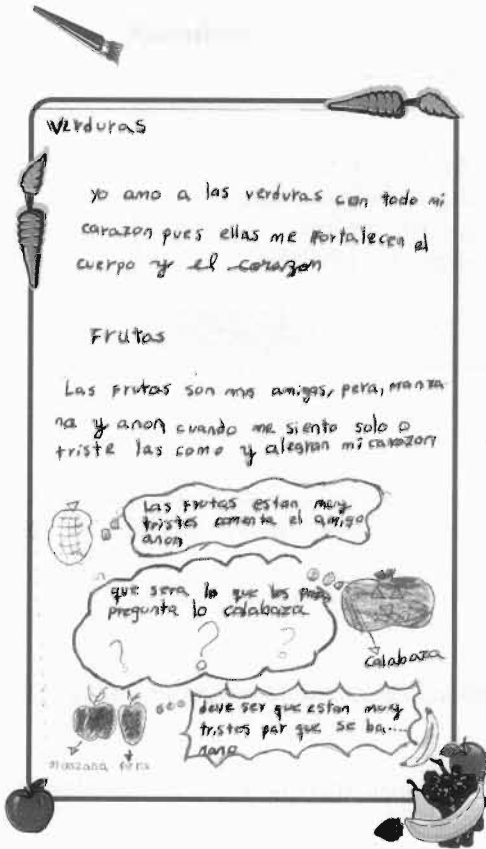 Verduras
yo amo a las verduras con todo mi
carazon pues ellas me fortalecen el
cuerpo y el corazon
Frutas
Las frutas son mis amigas, pera, manza
na y anon cuando me siento solo o
triste las como y alegran mi carazon
las frutas estan muy
tristes comenta el amigo
anon
que sera lo que les pasa
pregunta lo calabaza
? ? ?
calabaza
deve ser que estan muy
tristes por que se ba....
nano
manzana pera